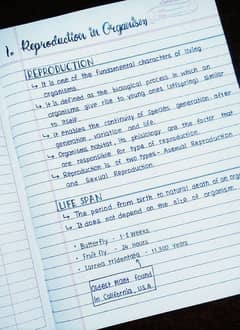 1. Reproduction in Organism
REPRODUCTION
↳ It is one of the fundamental characters of living
organisms.
↳ It is defined as the biological process in which an
organisms give rise to young ones (offspring) similar
to itself.
↳ It enables the continuity of species, generation after
generation, variation and life.
↳ Organisms habitat, its physiology are the factor that
are responsible for type of reproduction.
↳ Reproduction is of two types - Asexual Reproduction
and Sexual Reproduction.
LIFE SPAN
↳ The period from birth to natural death of an
↳ It does not depend on the size of organism.
• Butterfly - 1-2 weeks
• Fruit fly - 24 hours
• Larrea tridentata - 11,700 years
Oldest plant found
in California, U.S.A